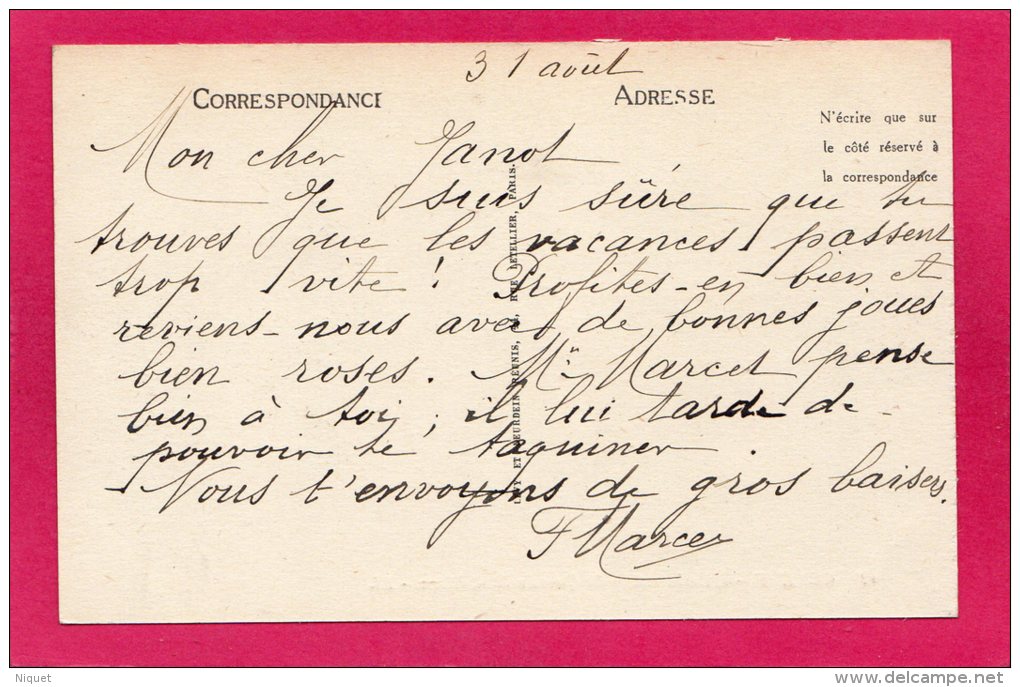 31 août
CORRESPONDANCE
ADRESSE
N'écrire que sur
le côté réservé à
la correspondance
Mon cher Janot
Je suis sûre que tu
trouves que les vacances passent
trop vite ! Profites-en bien et
reviens-nous avec de bonnes joues
bien roses. Mr Marcel pense
bien à toi ; il lui tarde de
pouvoir te taquiner.
Nous t'envoyons de gros baisers.
LEVY ET NEURDEIN RÉUNIS, RUE LETELLIER, PARIS.
Niquet
delcampe.net